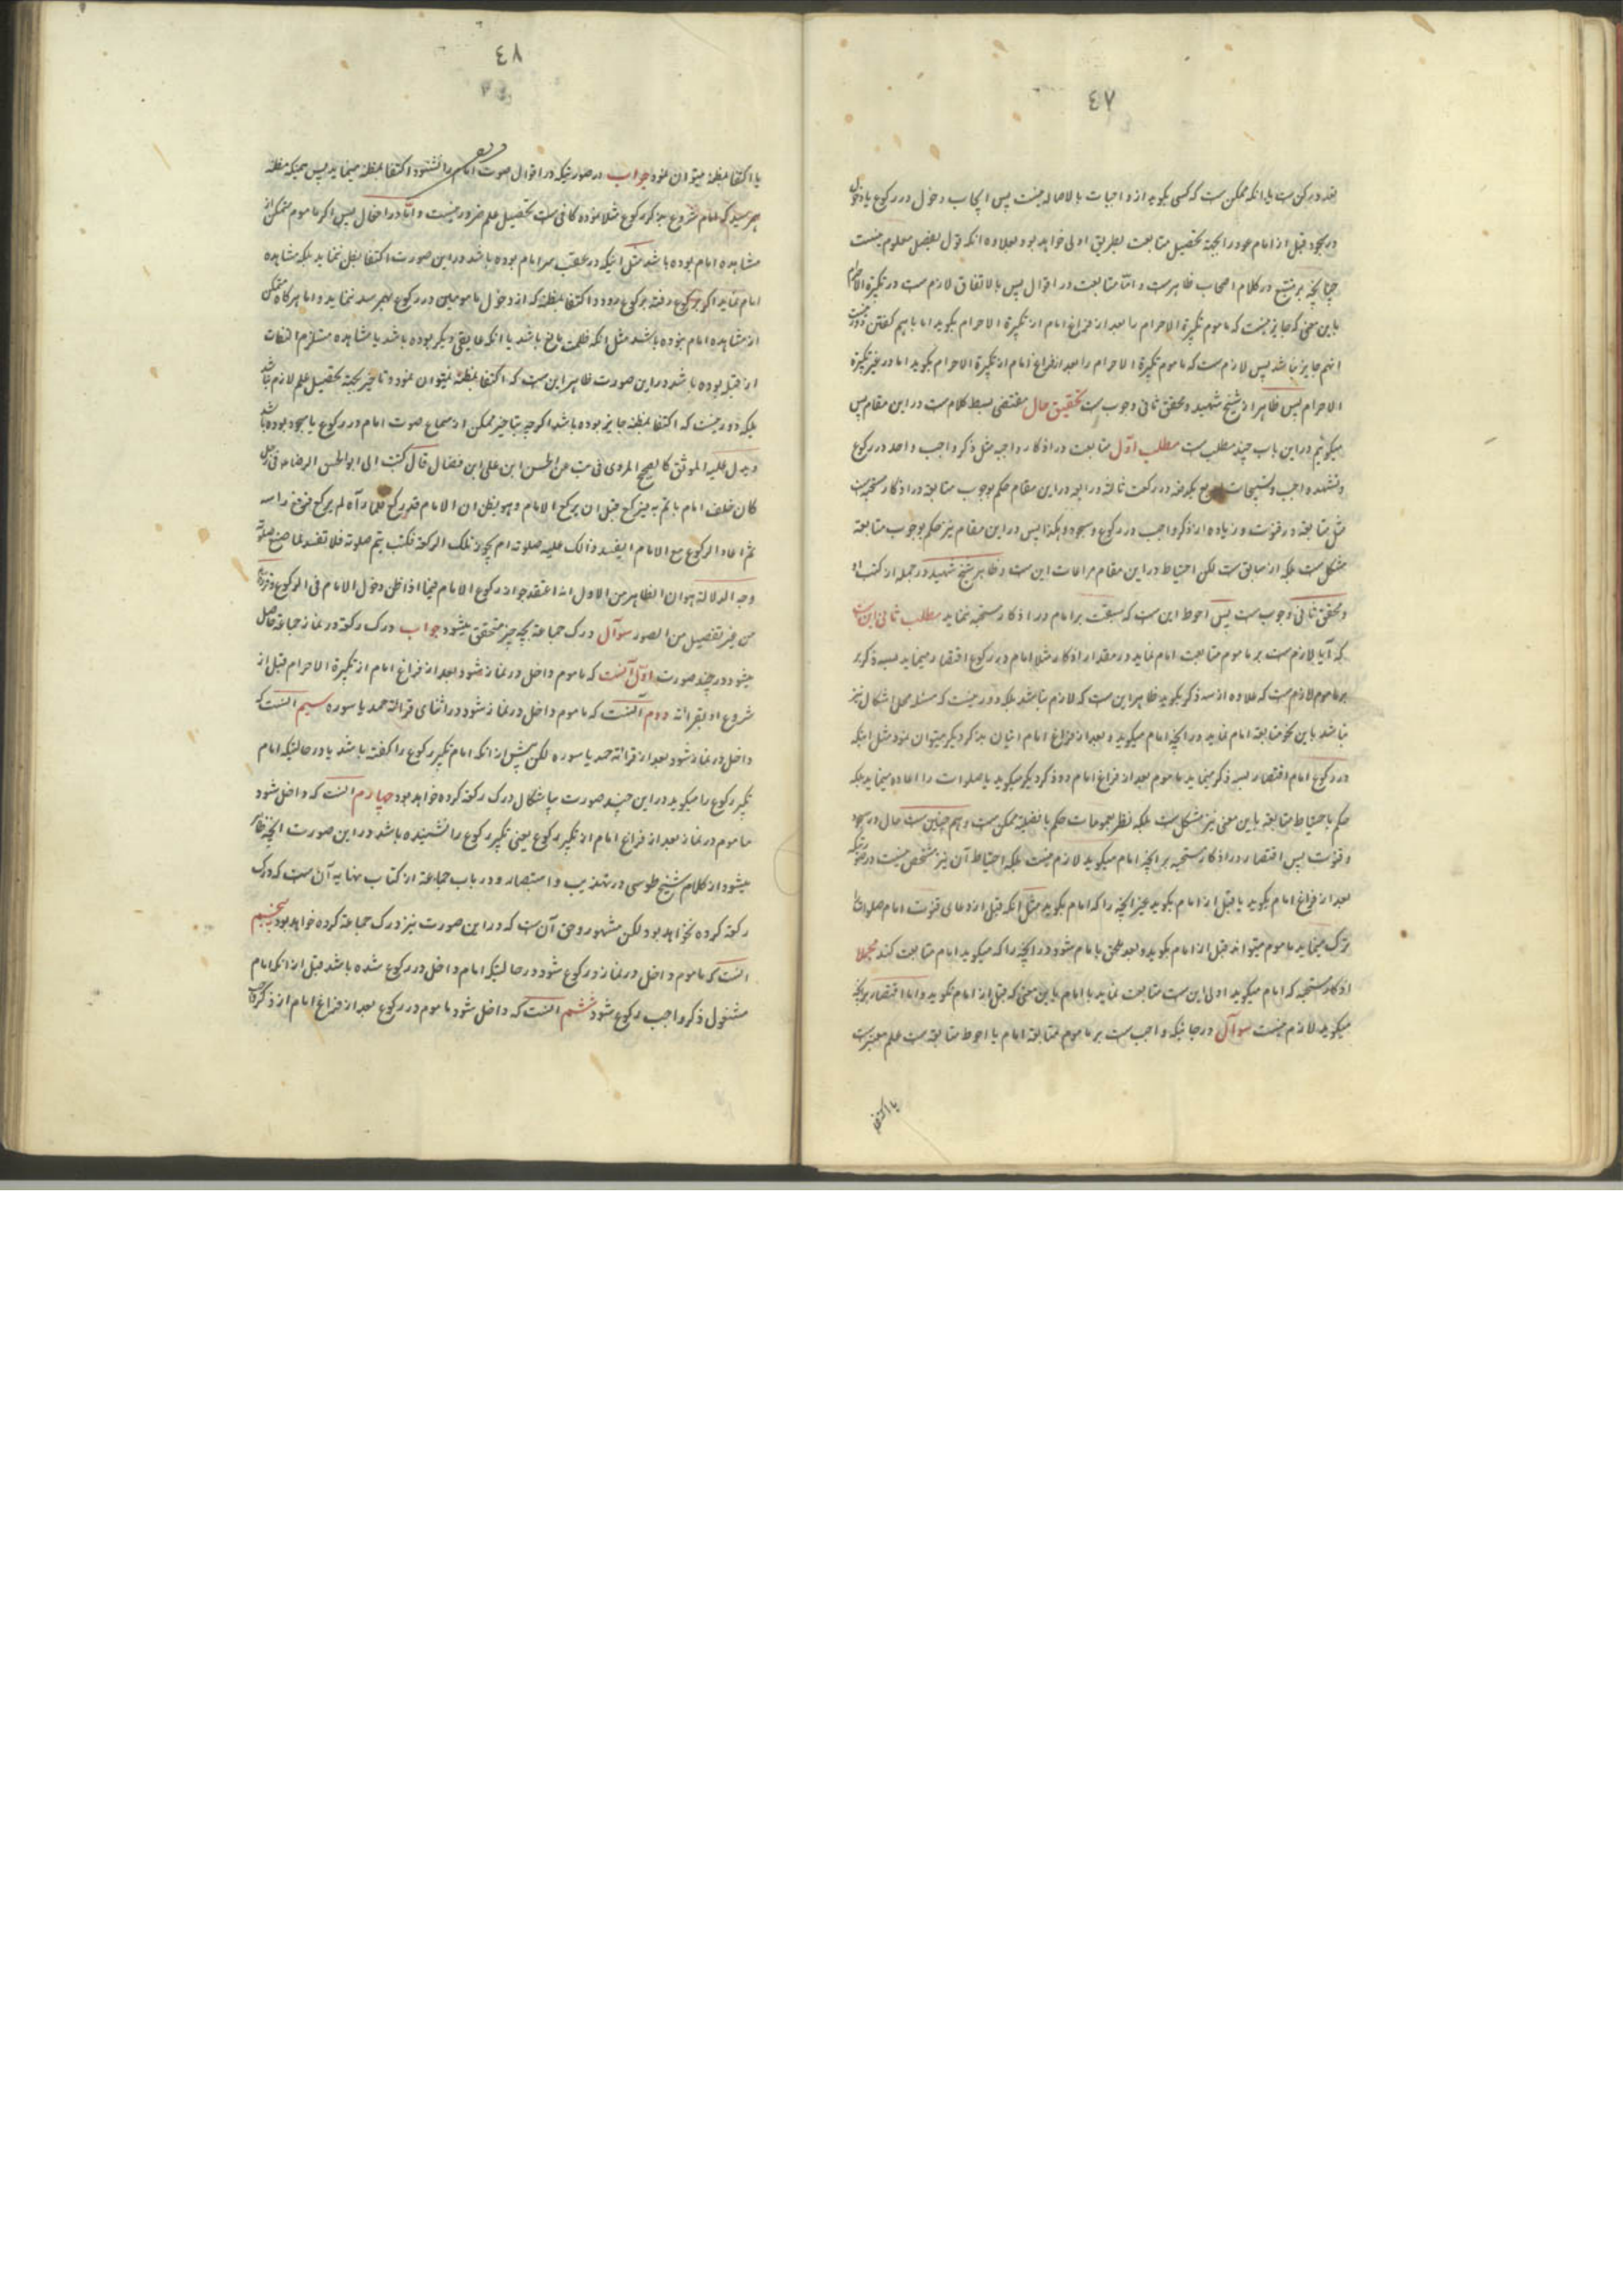 ٤٧
در سجود قبل از امام عودا بجهة تحصیل متابعت بطریق اولی خواهد بود و علاوه آنکه قول بفصل معلوم نیست
چنانچه بر متتبع در کلام اصحاب ظاهر است و اما متابعت در اقوال پس بالاتفاق لازم است در تکبیرة الاحرام
باین معنی که جایز نیست که ماموم تکبیرة الاحرام را بعد از فراغ امام از تکبیرة الاحرام بگوید اما باهم گفتن
انهم جایز نباشد پس لازم است که ماموم تکبیرة الاحرام را بعد از فراغ امام از تکبیرة الاحرام بگوید اما در غیر تکبیرة
الاحرام پس ظاهر از شیخ شهید و محقق ثانی وجوب است تحقیق حال مقتضی بسط کلام است در این مقام پس
میگوئیم در این باب چند مطلب است مطلب اول متابعت در اذکار واجبه مثل ذکر واجب واحد در رکوع
و تشهد واجب و تسبیحات اربع یکدفعه در رکعت ثالثه و رابعه در این مقام حکم بوجوب متابعة در اذکار مستحبه
مثل متابعة در قنوت و زیاده از ذکر واجب در رکوع و سجود و هکذا پس در این مقام نیز حکم بوجوب متابعة
مشکل است بلکه از سابق است لکن احتیاط در این مقام مراعات این است و ظاهر شیخ شهید در جمله از کتب او
و محقق ثانی وجوب است پس احوط این است که سبقت بر امام در اذکار مستحبه ننماید مطلب ثانی این است
که آیا لازم است بر ماموم متابعت امام نماید در مقدار اذکار مثلا امام در رکوع اقتصار مینماید بسه ذکر
بر ماموم لازم است که علاوه از سه ذکر نگوید ظاهر این است که لازم نباشد بلکه دور نیست که مسئله محل اشکال نیز
نباشد باین نحو متابعة امام نماید در انچه امام میگوید و بعد از فراغ امام اتیان بذکر دیگر میتوان نمود مثل اینکه
در رکوع امام اقتصار بسه ذکر مینماید ماموم بعد از فراغ امام دو ذکر دیگر میگوید یا صلوات را اعاده مینماید بلکه
حکم باحتیاط متابعة باین معنی نیز مشکل است بلکه نظر بعمومات حکم بافضلیة ممکن است و هم چنین است حال در سجود
و قنوت پس اقتصار در اذکار مستحبه بر انچه امام میگوید لازم نیست بلکه احتیاط آن نیز مشخص نیست
بعد از فراغ امام بگوید یا قبل از امام بگوید غیر انچه را که امام بگوید مثل انکه قبل از دعای قنوت امام صلوات
ترک مینماید ماموم میتواند قبل از امام بگوید و بعد ملحق بامام شود در انچه را که میگوید امام متابعت کند مجملا
اذکار مستحبه که امام میگوید اولی این است متابعت نماید با امام باین معنی که قبل از امام نگوید و اما اقتصار بر انچه
میگوید لازم نیست سوآل در جائیکه واجب است بر ماموم متابعة امام یا احوط متابعة است علم معتبر است
یا اکتفا
٤٨
یا اکتفا بمظنه میتوان نمود جواب در صورتیکه در اقوال صوت امام را نشنود اکتفا بمظنه مینماید پس همینکه مظنه
بهم رسید که امام شروع بذکر رکوع مثلا نموده کافی است تحصیل علم ضرور نیست و اما در افعال پس اگر ماموم متمکن از
مشاهده امام بوده باشد مثل اینکه در عقب سر امام بوده باشد در این صورت اکتفا بظن ننماید بلکه مشاهده
امام نماید اگر برکوع رفته برکوع رود و اکتفا بمظنه که از دخول مامومین در رکوع بهم رسد ننماید و اما هرگاه متمکن
از مشاهده امام نبوده باشد مثل انکه ظلمت مانع باشد یا انکه عایقی دیگر بوده باشد یا مشاهده مستلزم التفات
از قبله بوده باشد در این صورت ظاهر این است که اکتفا بمظنه میتوان نمود و تاخیر بجهة تحصیل علم لازم نباشد
بلکه دور نیست که اکتفا بمظنه جایز بوده باشد اگرچه بتاخیر ممکن از سماع صوت امام در رکوع یا سجود بوده باشد
و یدل علیه الموثق کالصحیح المروی فی یب عن الحسن ابن علی ابن فضال قال کتبت الی ابوالحسن الرضا ع فی رجل
کان خلف امام یاتم به فیرکع قبل ان یرکع الامام و هو یظن ان الامام قد رکع فلما رآه لم یرکع فرفع راسه
ثم اعاد الرکوع مع الامام ایفسد ذالک علیه صلوته ام یجوز تلک الرکعة فکتب یتم صلوته فلا تفسد لما صنع صلوته
وجه الدلالة هو ان الظاهر من الاول انه اعتقد جواز رکوع الامام فیما اذا ظن دخول الامام فی الرکوع
من غیر تفصیل من الصور سوآل درک جماعة بچه چیز متحقق میشود جواب درک رکعة در نماز جماعة حاصل
میشود در چند صورت اول آنست که ماموم داخل در نماز شود بعد از فراغ امام از تکبیرة الاحرام قبل از
شروع او بقرائة دوم آنست که ماموم داخل در نماز شود در اثنای قرائة حمد یا سوره سیم آنست که
داخل در نماز شود بعد از قرائة حمد یا سوره لکن پیش از انکه امام تکبیر رکوع را گفته باشد یا در حالتیکه امام
تکبیر رکوع را میگوید در این چند صورت بیاشکال درک رکعة کرده خواهد بود چهارم آنست که داخل شود
ماموم در نماز بعد از فراغ امام از تکبیر رکوع یعنی تکبیر رکوع را نشنیده باشد در این صورت انچه ظاهر
میشود از کلام شیخ طوسی در تهذیب و استبصار و در باب جماعة از کتاب نهایه آن است که درک
رکعة کرده نخواهد بود لکن مشهور و حق آن است که در این صورت نیز درک جماعة کرده خواهد بود پنجم
آنست که ماموم داخل در نماز و رکوع شود در حالتیکه امام داخل در رکوع شده باشد قبل از انکه امام
مشغول ذکر واجب رکوع شود ششم آنست که داخل شود ماموم در رکوع بعد از فراغ امام از ذکر واجب